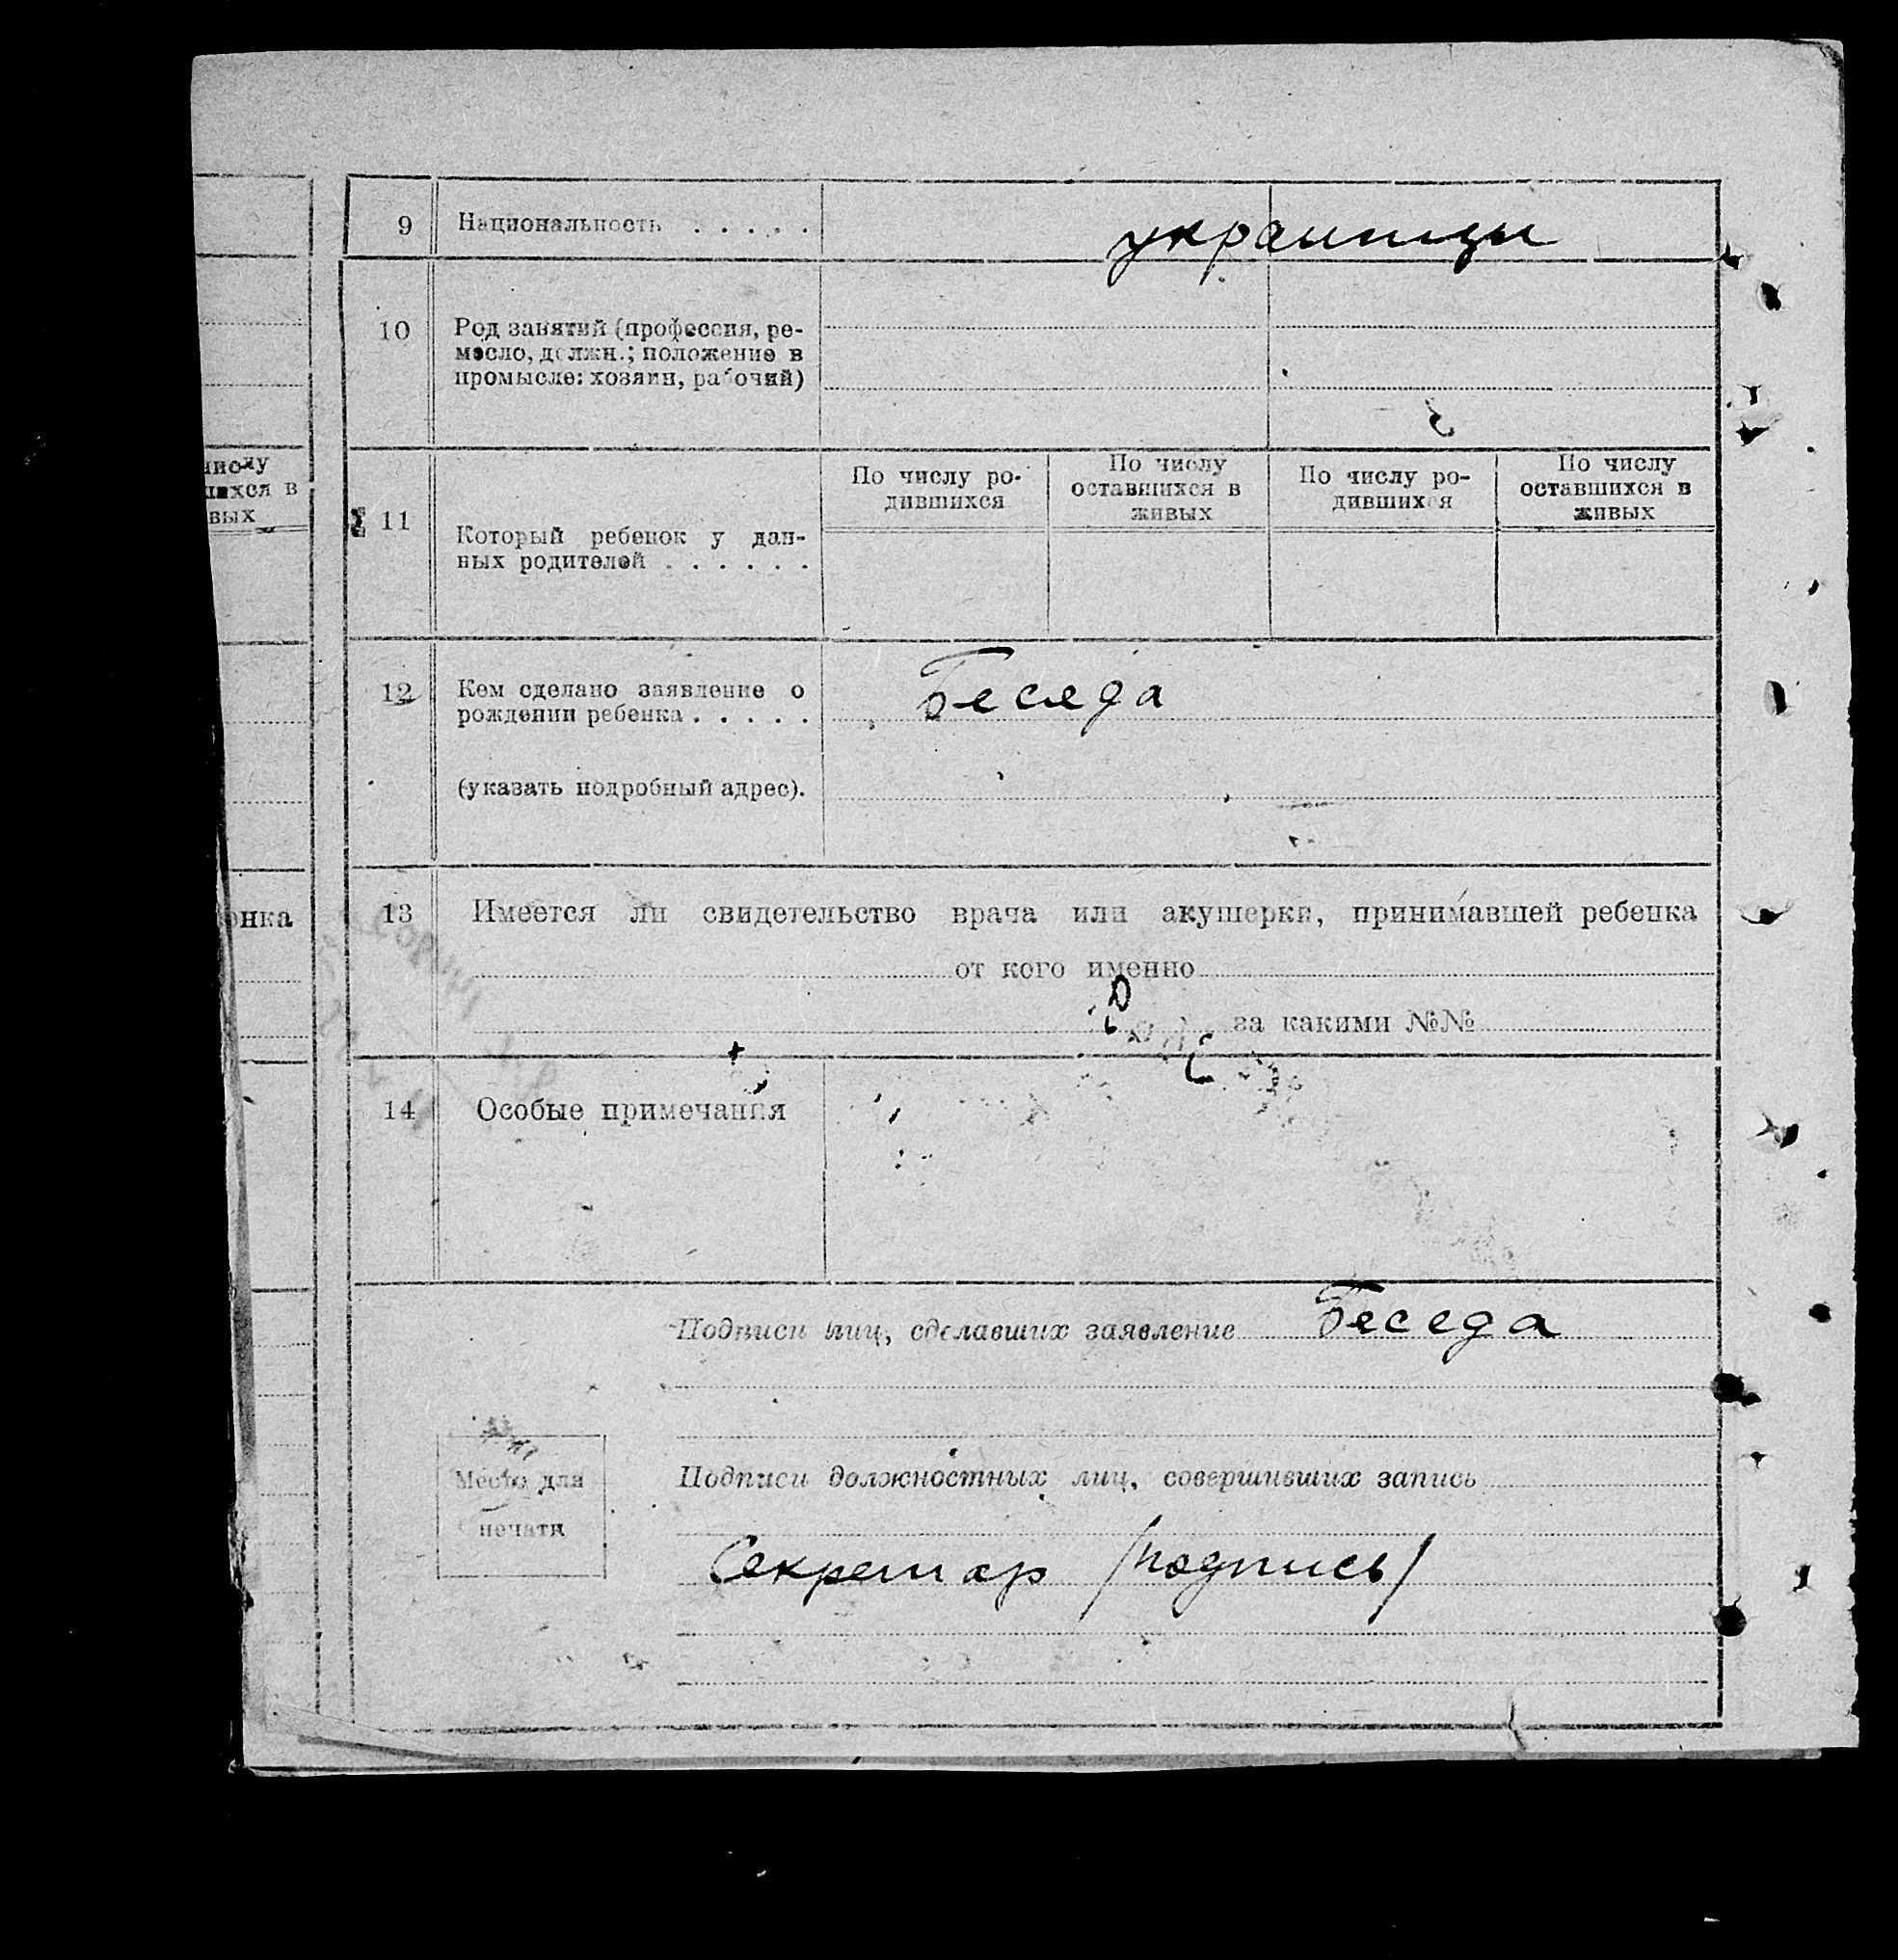 9 Национальность . . . . . украинцы
10 Род занятий (профессия, ре-
месло, должн.; положение в
промысле: хозяин, рабочий)
числу
шихся в
вых
По числу ро-
дившихся
По числу
оставшихся в
живых
По числу ро-
дившихся
По числу
оставшихся в
живых
11 Который ребенок у дан-
ных родителей . . . . . .
12 Кем сделано заявление о
рождении ребенка . . . . . Беседа
(указать подробный адрес).
онка
13 Имеется ли свидетельство врача или акушерки, принимавшей ребенка
от кого именно
за какими №№
14 Особые примечания
Подписи лиц, сделавших заявление Беседа
Место для
печати
Подписи должностных лиц, совершивших запись
Секретар /подпись/